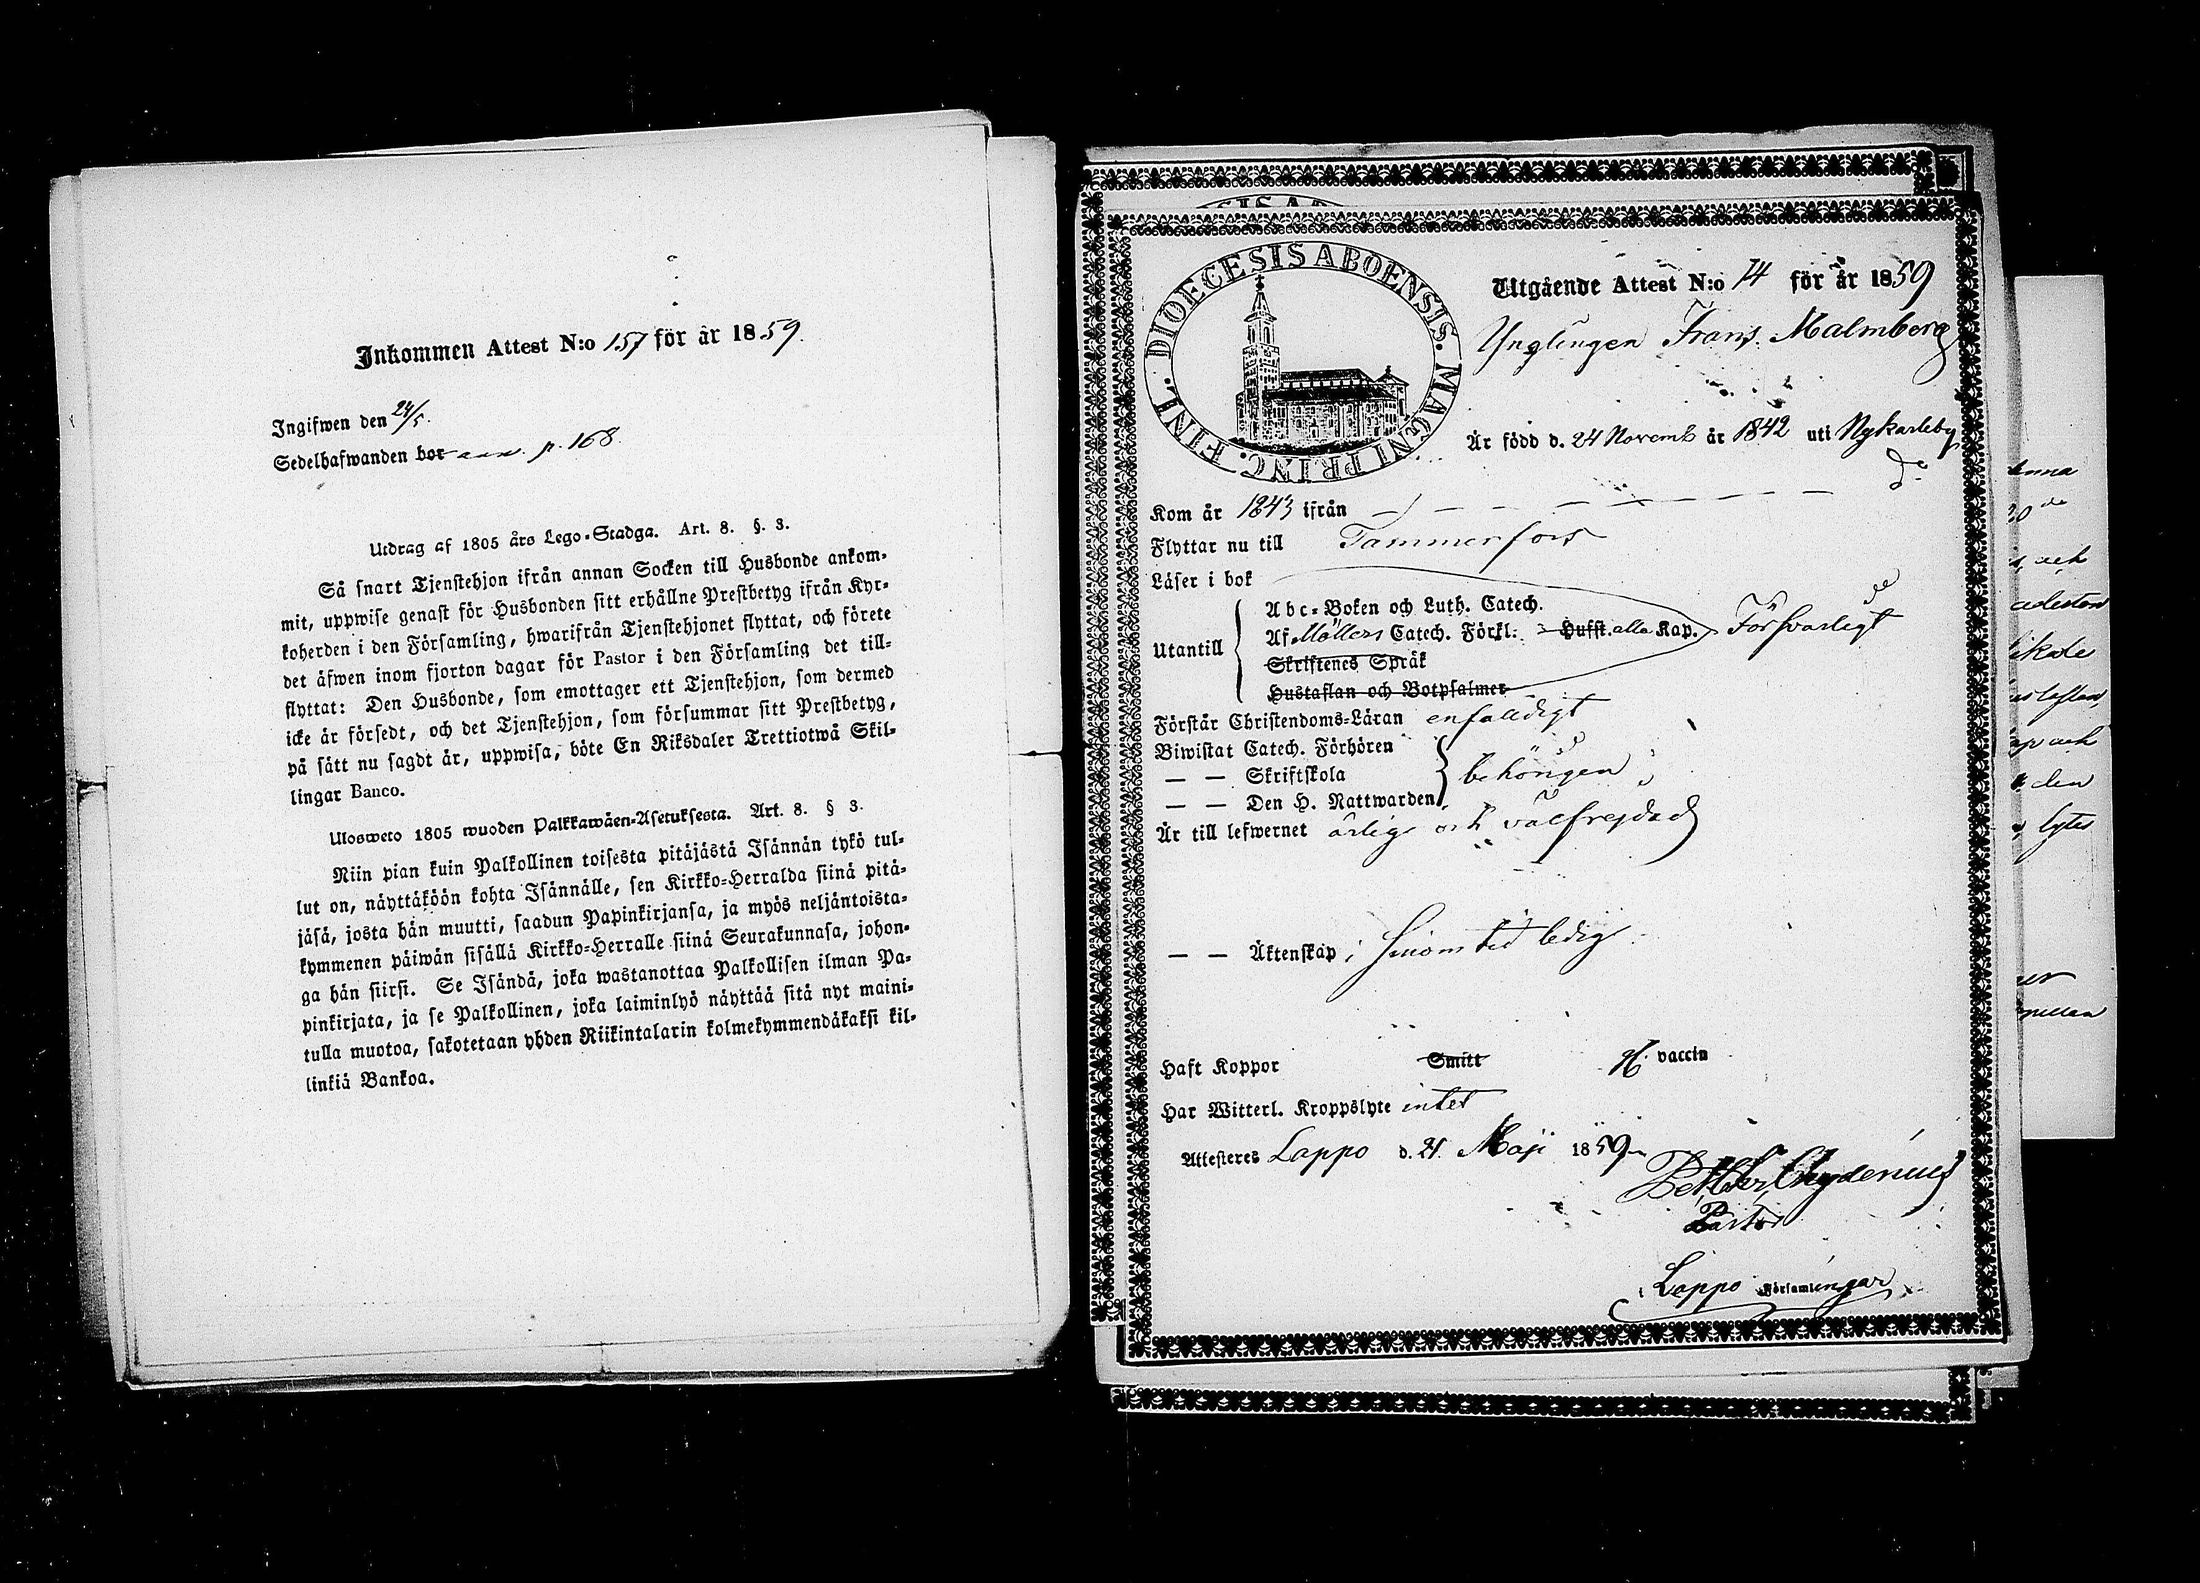 Inkommen Attest N:o 157 för år 1859.
Ingifwen den 24/5.
Sedelhafwanden bor p. 168.
Utdrag af 1805 års Lego-Stadga. Art. 8. §. 3.
Så snart Tjenstehjon ifrån annan Socken till Husbonde ankom-
mit, uppwise genast för Husbonden sitt erhållne Prestbetyg ifrån Kyr-
koherden i den Församling, hwarifrån Tjenstehjonet flyttat, och förete
det äfwen inom fjorton dagar för Pastor i den Församling det till-
flyttat: Den Husbonde, som emottager ett Tjenstehjon, som dermed
icke är försedt, och det Tjenstehjon, som försummar sitt Prestbetyg,
på sätt nu sagdt är, uppwisa, böte En Riksdaler Trettiotwå Skil-
lingar Banco.
Ulosweto 1805 wuoden Palkkawäen-Asetuksesta. Art. 8. § 3.
Niin pian kuin Palkollinen toisesta pitäjästä Isännän tykö tul-
lut on, näyttäköön kohta Isännälle, sen Kirkko-Herralda siinä pitä-
jäsä, josta hän muutti, saadun Papinkirjansa, ja myös neljäntoista-
kymmenen päiwän sisällä Kirkko-Herralle siinä Seurakunnasa, johon-
ga hän siirsi. Se Isändä, joka wastanottaa Palkollisen ilman Pa-
pinkirjata, ja se Palkollinen, joka laiminlyö näyttää sitä nyt maini-
tulla muotoa, sakotetaan yhden Riikintalarin kolmekymmendäkaksi kil-
linkiä Bankoa.
DIOECESIS ABOENSIS. MAGNI PRINC. FINL.
Utgående Attest N:o 74 för år 1859
Ynglingen Frans Malmberg
Är född d. 24 Novemb år 1842 uti Nykarleby
Kom år 1843 ifrån — — — — — —
Flyttar nu till Tammerfors
Läser i bok
Utantill
Abc-Boken och Luth. Catech.
Af Möllers Catech. Förkl: Hufst. alla Kap. Försvarligt
Skriftenes Språk
Hustaflan och Botpsalmer
Förstår Christendoms-Läran enfaldigt
Biwistat Catech. Förhören
— — Skriftskola behörigen
— — Den H. Nattwarden
Är till lefwernet ärlig och välfrejdad
— — Äktenskap; ledig
Haft Koppor Smitt vaccin
Har Witterl. Kroppslyte intet
Attesteres Lappo d. 21 Maji 1859
Chydenius
Pastor
i Lappo Församlingar
enna
20de
s, och
likale
ap och
den
lytes